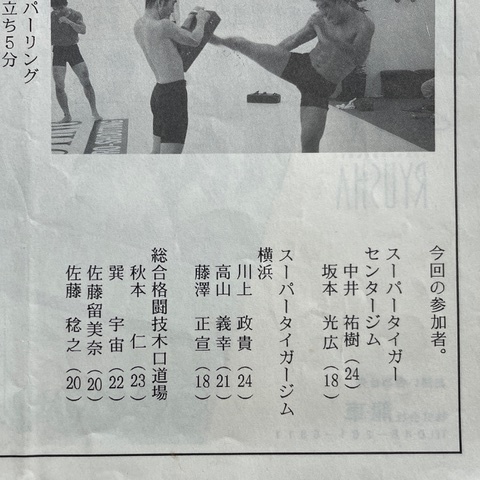 今回の参加者。
スーパータイガー
センタージム
中井 祐樹 (24)
坂本 光広 (18)
スーパータイガージム
横浜
川上 政貴 (24)
高山 義幸 (21)
藤澤 正宣 (18)
総合格闘技木口道場
秋本 仁 (23)
巽 宇宙 (22)
佐藤留美奈 (20)
佐藤 稔之 (20)
パーリング
立ち5分
RYUSHA